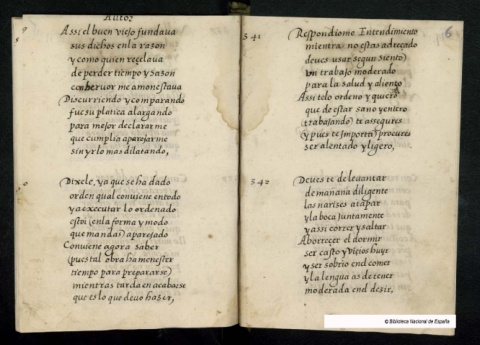 Autor
Assi el buen viejo fundava
sus dichos enla razon
y como quien reçelava
de perder tiempo y sazon
con hervor me amonestava
Discurriendo y comparando
fue su platica alargando
para mejor declararme
que cumplia aparejarme
sin yr lo mas dilatando,
Dixele, ya que se ha dado
orden qual conviene entodo
y a executar lo ordenado
estoi enla forma y modo
que mandas aparejado
Conviene agora saber
(pues tal obra ha menester
tiempo para prepararse)
mientras tarda en acabarse
que es lo que devo hazer,
341
Respondiome Intendimiento
mientra no estas adreçado
deves usar segun siento
un trabajo moderado
para la salud y aliento
Assi te lo ordeno y quiero
que de estar sano y entero
(trabajando) te assegures
y pues te importa procures
ser alentado y ligero,
342
Deves te de levantar
de mañana diligente
las narizes atapar
y la boca juntamente
y assi correr y saltar
Aborrecer el dormir
ser casto y vicios huyr
y ser sobrio enel comer
y la lengua as detener
moderada enel dezir.
© Biblioteca Nacional de España